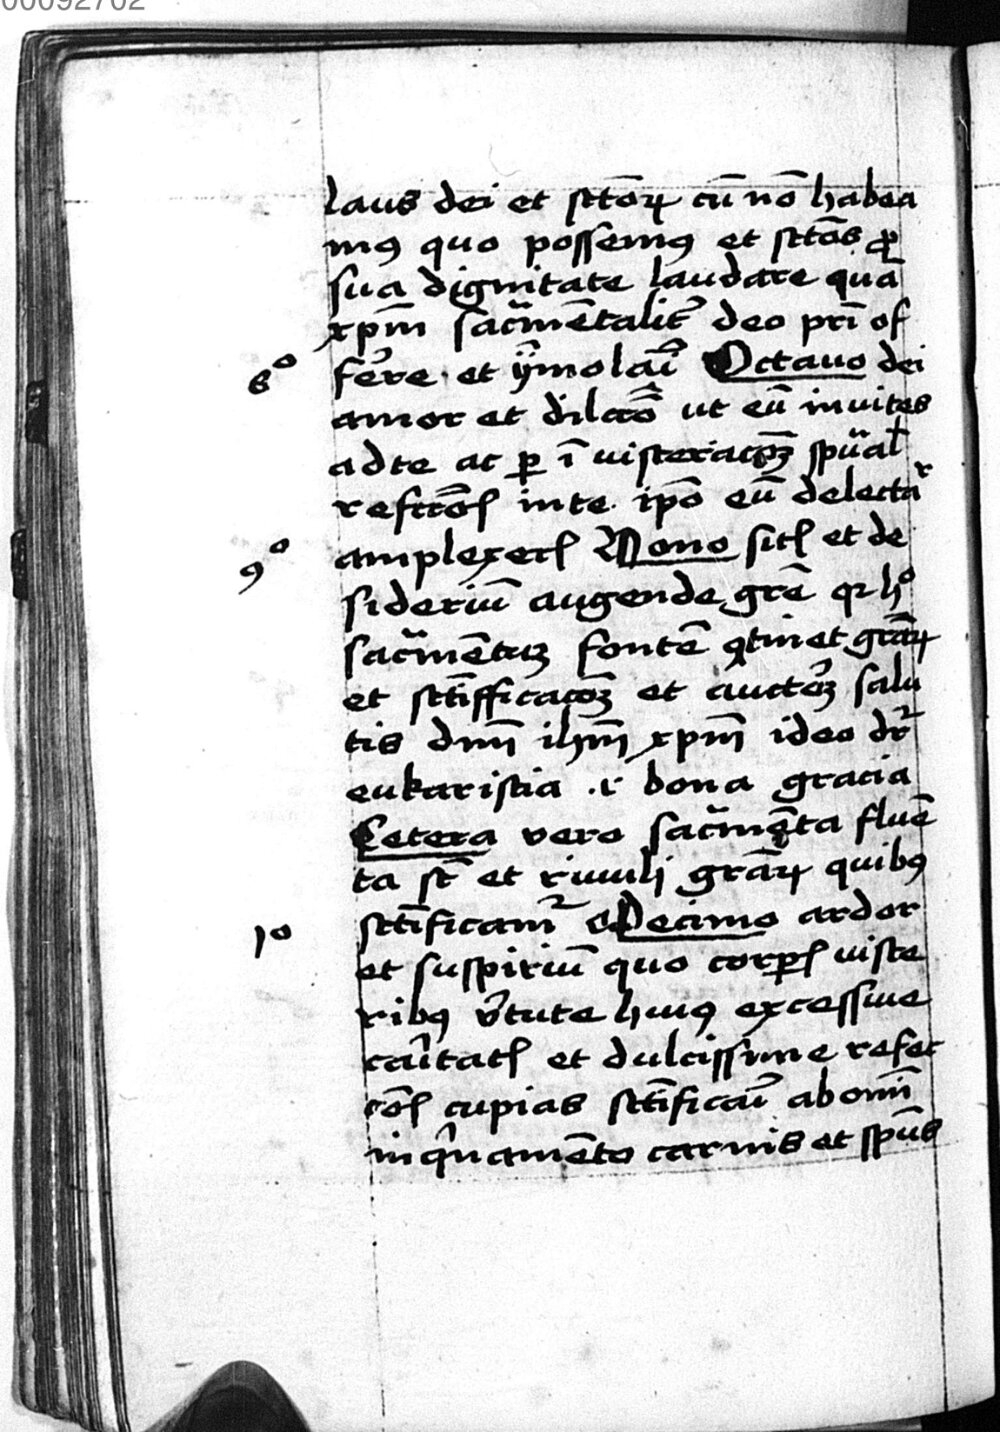 00092702
laus dei et sctōrꝝ cū nō habea
mꝰ quo possemꝰ et sctōs ꝓ
sua dignitate laudare quā
xpm̄ sacr̄mētalit̓ deo pr̄i of
8º fer̄e et ȳmolar̄i Octauo dei
amor et dilcōō ut eū inuites
ad te ac ꝑ ī uisceracōꝫ sp̄ual̄
refcc̄oīs in te ip̄o eū delectar
9º amplexeris Nono sitis et de
sideriū augende grē qr hº
sacr̄mētuꝫ fontē ꝯtinet grāꝝ
et sctīfficacōꝫ et auctōꝫ salu
tis dnm̄ ihm̄ xpm̄ ideo dr̄
eukaristia .i. bona gracia
Cetera vero sacr̄mēta fluē
ta st̄ et riuuli grāꝝ quibꝰ
10 sctīficam̄r Decimo ardor
et suspiriū quo corꝑis uisce
ribꝰ v̄tute huiꝰ excessiue
car̄itatis et dulcissime refec
cōis cupias sctīficar̄i ab om̄i
inq̄namēto carnis et sp̄us